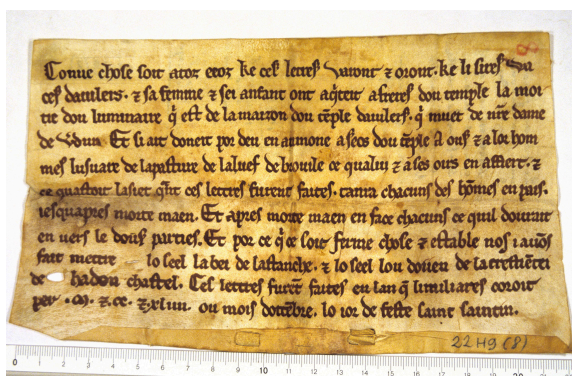 Conue chose soit atoz ceoz ke ces lettres varont ⁊ oront. ke li sires
ces dauilers. ⁊ sa femme ⁊ sei anfant ont aq̇teit a freres dou temple la moi
tie dou luminaire q̇ est de la maizon dou tēple dauilers. q̇ muet de nr̄e dame
de Et si ait doneit por deu en aumone a ceos dou tēple A ous ⁊ a lor hom
mes lusuare de la pasture de la de ⁊ a ses ours en affiert. ⁊
ce q̄nt ces lettres furent faites. tanra chacuns des hōmes en pais.
iesquapres morte maen. Et apres morte maen en face chacuns ce quil dourait
en uers le dous parties. Et por ce q̇ ce soit ferme chose ⁊ estable nos i auōs
fait mettre lo seel la bei de lastanche. ⁊ lo seel lou doien de la crestiēteī
de hadon chastel. Ces lettres furēt faites en lan q̇ li miliares coroit
per .M. ⁊ .cc. ⁊ .xliiii. ou mois doctēbre. lo ior de feste saint
8
22 H9 (8)
0 1 2 3 4 5 6 7 8 9 10 11 12 13 14 15 16 17 18 19 20 21